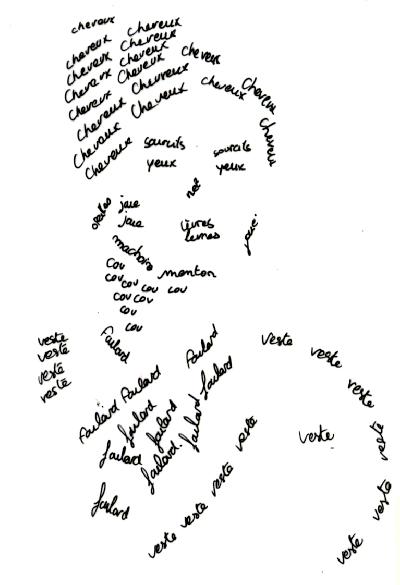 cheveux
cheveux cheveux
cheveux cheveux cheveux
cheveux cheveux
cheveux cheveux cheveux cheveux
cheveux cheveux
cheveux
cheveux cheveux
sourcils sourcils
yeux yeux
nez
joue
joue lèvres
lèvres joue
machoire
cou menton
cou cou cou cou cou
cou cou
cou
cou
foulard foulard
veste veste
veste veste
veste veste
veste
foulard foulard foulard
foulard foulard veste
foulard foulard veste
foulard veste
foulard veste veste
veste veste veste